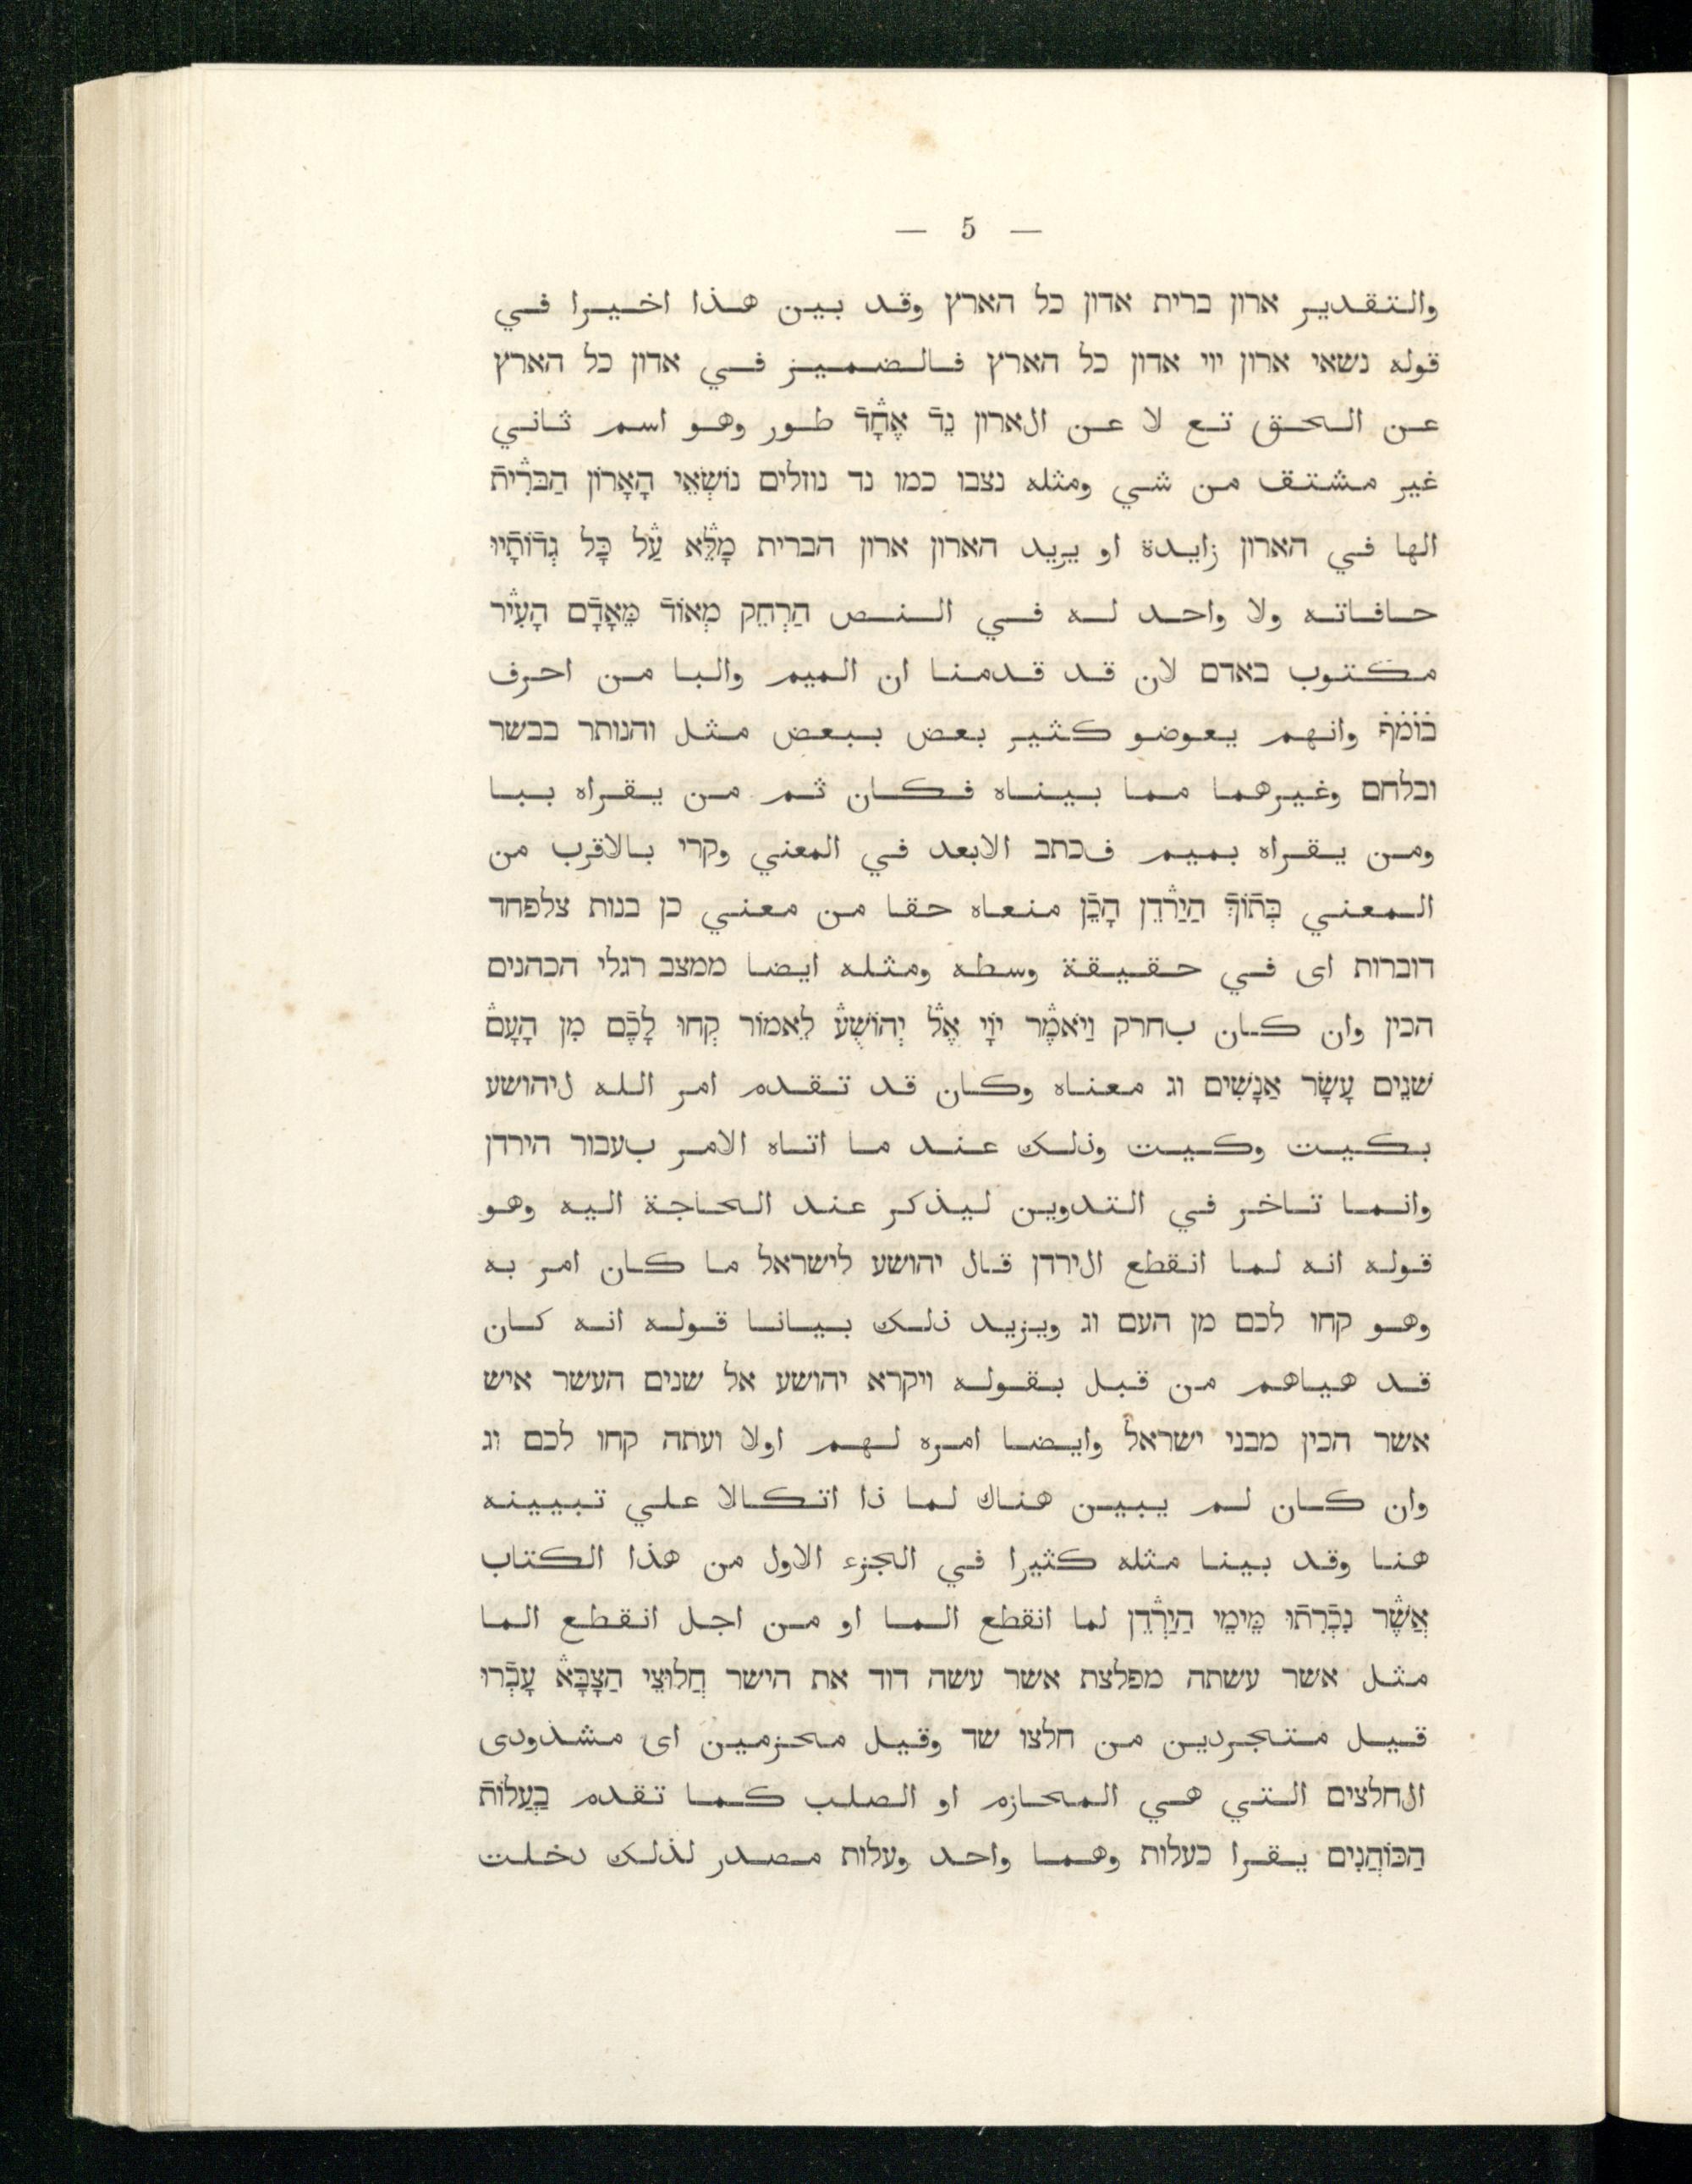 — 5 —
والتقدير ארון ברית אדון כל הארץ وقد بين هذا اخيرا في
قوله נשאי ארון ייי אדון כל הארץ فالضميز في אדון כל הארץ
عن الحق تع لا عن الארון נֵד אֶחָד طور وهو اسم ثاني
غير مشتق من شي ومثله נצבו כמו נד נוזלים נוֹשְׂאֵי הָאָרוֹן הַבְּרִית
الها في הארון زايدة او يريد הארון ארון הברית מָלֵא עַל כָּל גְדוֹתָיו
حافاته ولا واحد له في النص הַרְחֵק מְאוֹד מֵאָדָם הָעִיר
مكتوب באדם لان قد قدمنا ان الميم والبا من احرف
בֹוֹמֹףֹ وانهم يعوضو كثير بعض ببعض مثل והנותר בבשר
ובלחם وغيرهما مما بيناه فكان ثم من يقراه ببا
ومن يقراه بميم فכתב الابعد في المعني وقري بالاقرب من
المعني בְּתוֹךְ הַיַרְדֵן הָכֵן منعاه حقا من معني כן בנות צלפחד
דוברות اى في حقيقة وسطه ومثله ايضا ממצב רגלי הכהנים
הכין وان كان بחרק וַיֹאמֶר יְוָי אֶל יְהוֹשֻׁעַ לֵאמוֹר קְחוּ לָכֶם מִן הָעָם
שְׁנֵים עָשָׂר אַנָשִׁים וג معناه وكان قد تقدم امر الله لיהושע
بكيت وكيت وذلك عند ما اتاه الامر بעבור הירדן
وانما تاخر في التدوين ليذكر عند الحاجة اليه وهو
قوله انه لما انقطع الירדן قال יהושע לישראל ما كان امر به
وهو קחו לכם מן העם וג ويزيد ذلك بيانا قوله انه كان
قد هياهم من قبل بقوله ויקרא יהושע אל שנים העשר איש
אשר הכין מבני ישראל وايضا امره لهم اولا ועתה קחו לכם וג
وان كان لم يبين هناك لما ذا اتكالا علي تبيينه
هنا وقد بينا مثله كثيرا في الجزء الاول من هذا الكتاب
אֲשֶׁר נִכְרְתוּ מֵימֵי הַיַרְדֵן لما انقطع الما او من اجل انقطع الما
مثل אשר עשתה מפלצת אשר עשה דוד את הישר חֲלוּצֵי הַצָבָא עָבְרוּ
قيل متجردين من חלצו שד وقيل محزمين اى مشذودى
الחלצים التي هي المحازم او الصلب كما تقدم בַעֲלוֹת
הַכּוֹהֲנִים يقرا כעלות وهما واحد وעלות مصدر لذلك دخلت